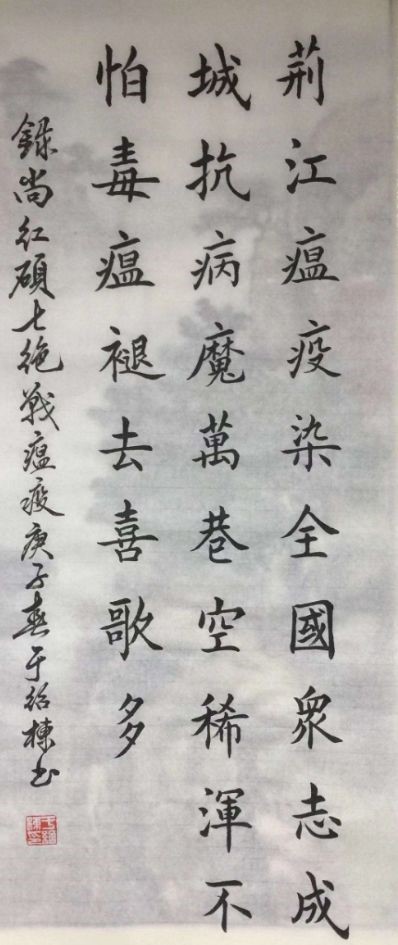 荊江瘟疫染全國眾志成
城抗病魔萬巷空稀渾不
怕毒瘟褪去喜歌多
錄尚紅碩七絕戰瘟疫庚子春于紹棟书